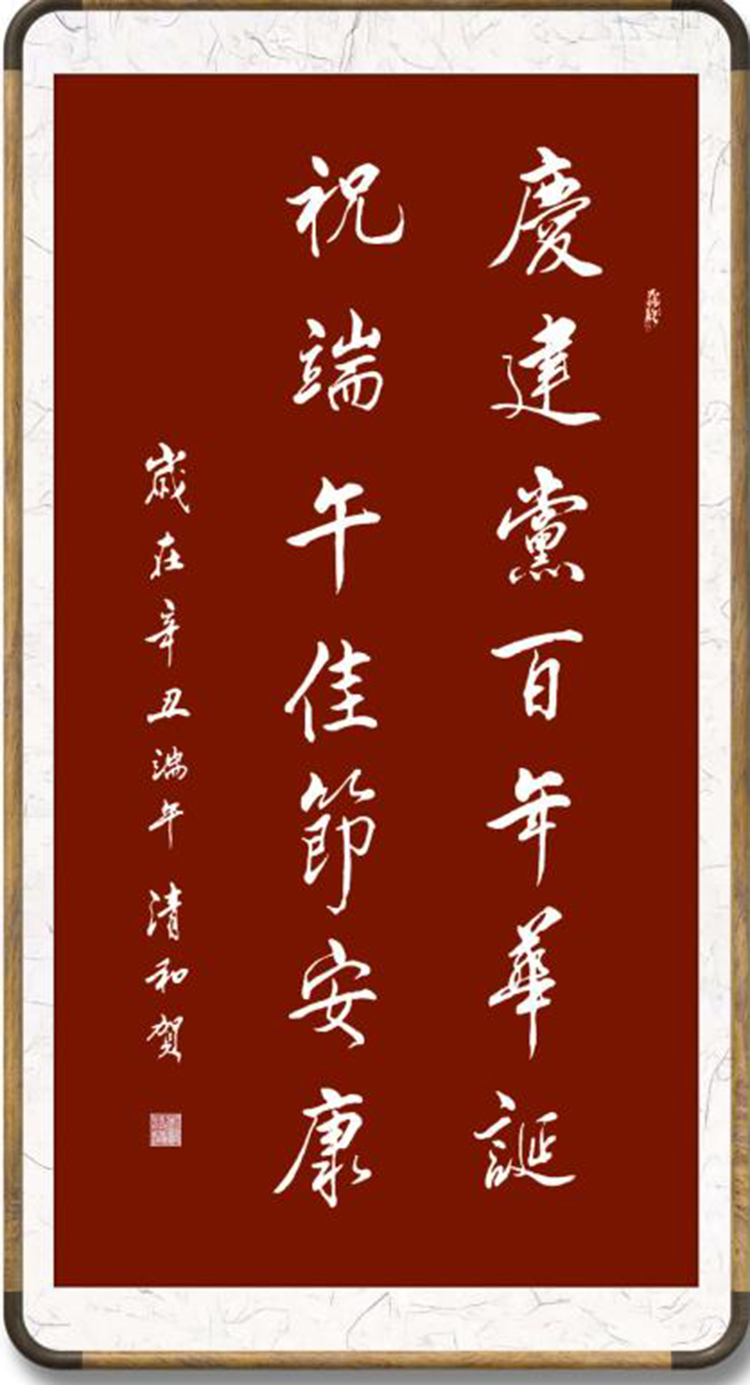 慶建黨百年華誕
祝端午佳節安康
歲在辛丑端午 清和賀